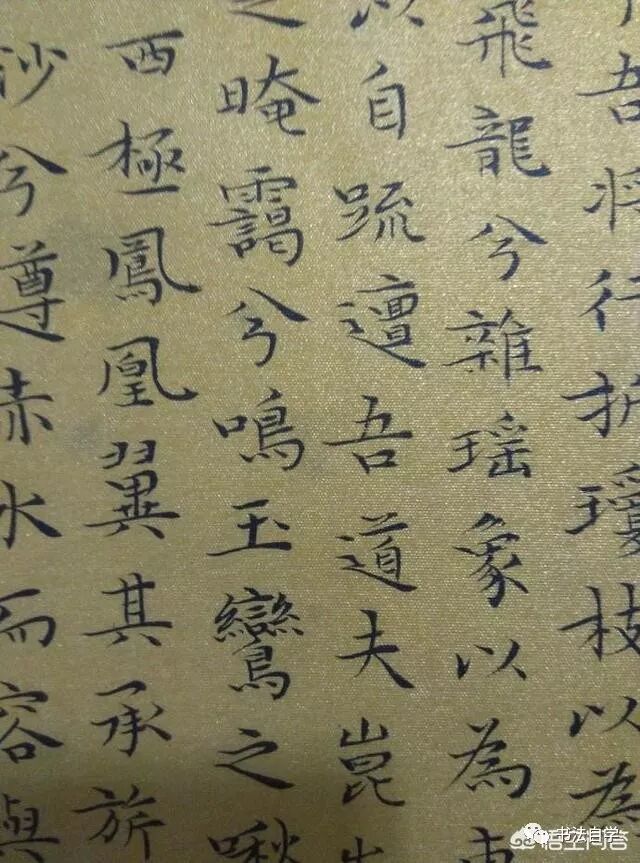 吾将行折瓊枝以為
飛龍兮雜瑶象以為車
以自疏邅吾道夫崑
之晻靄兮鳴玉鸞之啾
西極鳳凰翼其承旂
沙兮遵赤水而容與
书法自学
悟空问答